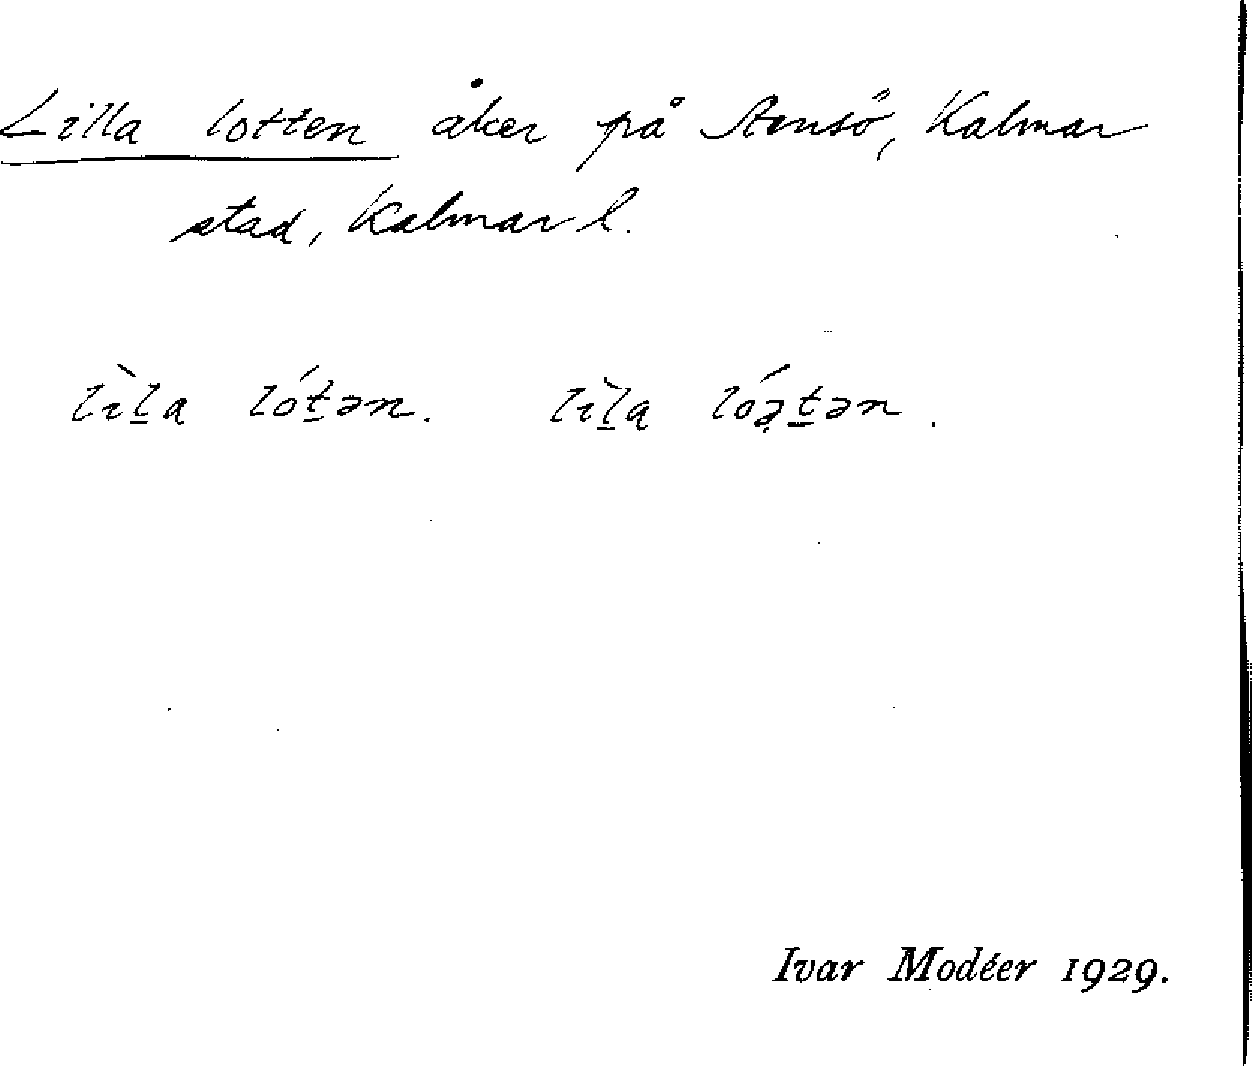 Lilla lotten åker på Stensö, Kalmar
stad, Kalmar l.
lìl̠a lót̠ən. lìl̠a lóə̣t̠ən.
Ivar Modéer 1929.